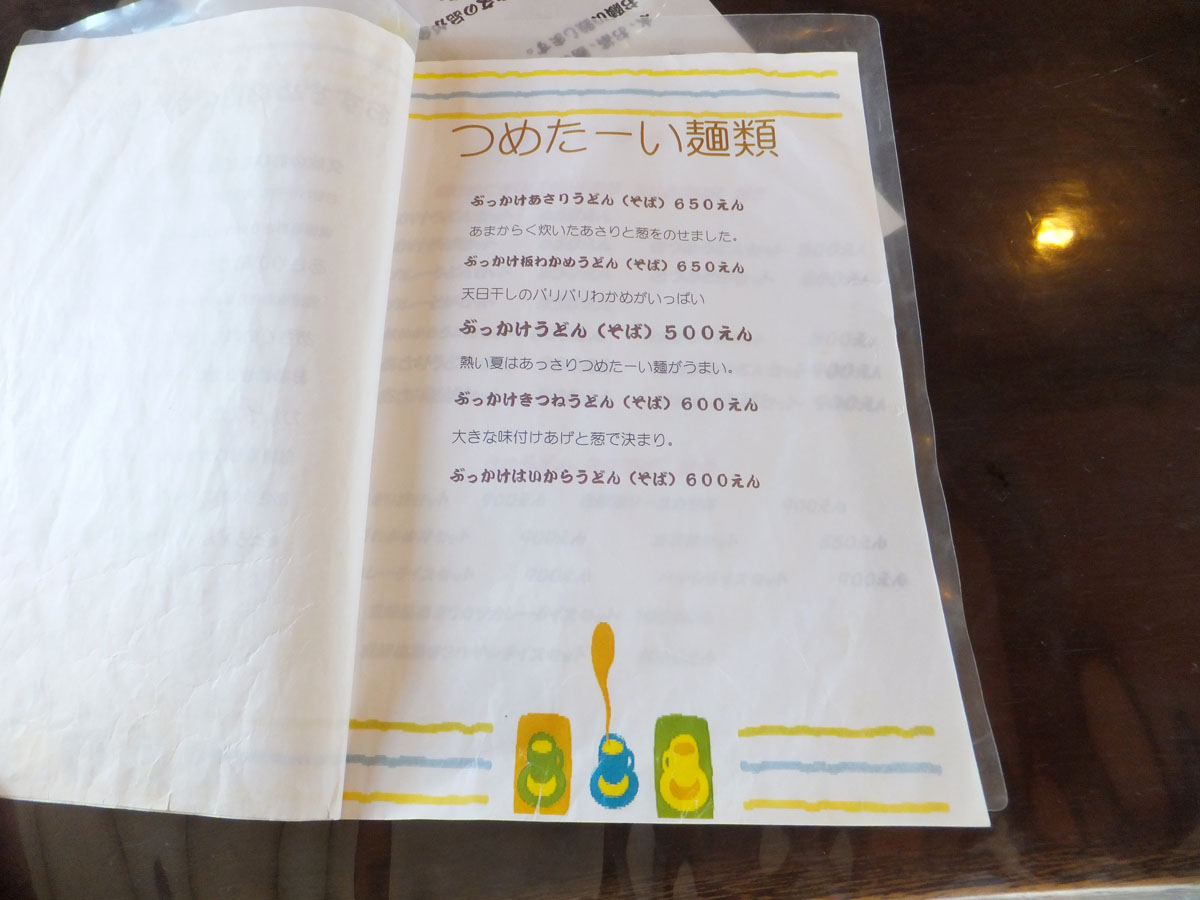 お願い致します。
つめたーい麺類
ぶっかけあさりうどん（そば）６５０えん
あまからく炊いたあさりと葱をのせました。
ぶっかけ板わかめうどん（そば）６５０えん
天日干しのパリパリわかめがいっぱい
ぶっかけうどん（そば）５００えん
熱い夏はあっさりつめたーい麺がうまい。
ぶっかけきつねうどん（そば）６００えん
大きな味付けあげと葱で決まり。
ぶっかけはいからうどん（そば）６００えん